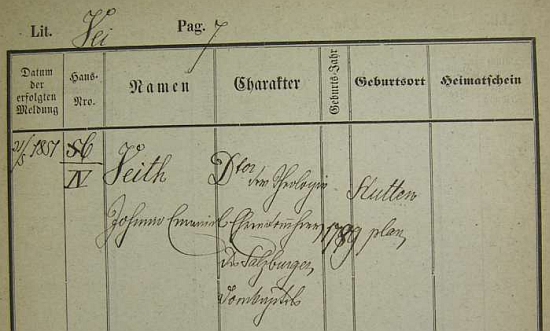 Lit. Vei Pag. 7
Datum der erfolgten Meldung
Haus-Nro.
Namen
Charakter
Geburts-Jahr
Geburtsort
Heimatschein
1851
IV
Veith
Johann Emanuel
Dtor
der Theologie
Ehrendomherr
des Salzburger
Domkapitels
1789
Kutten
plan